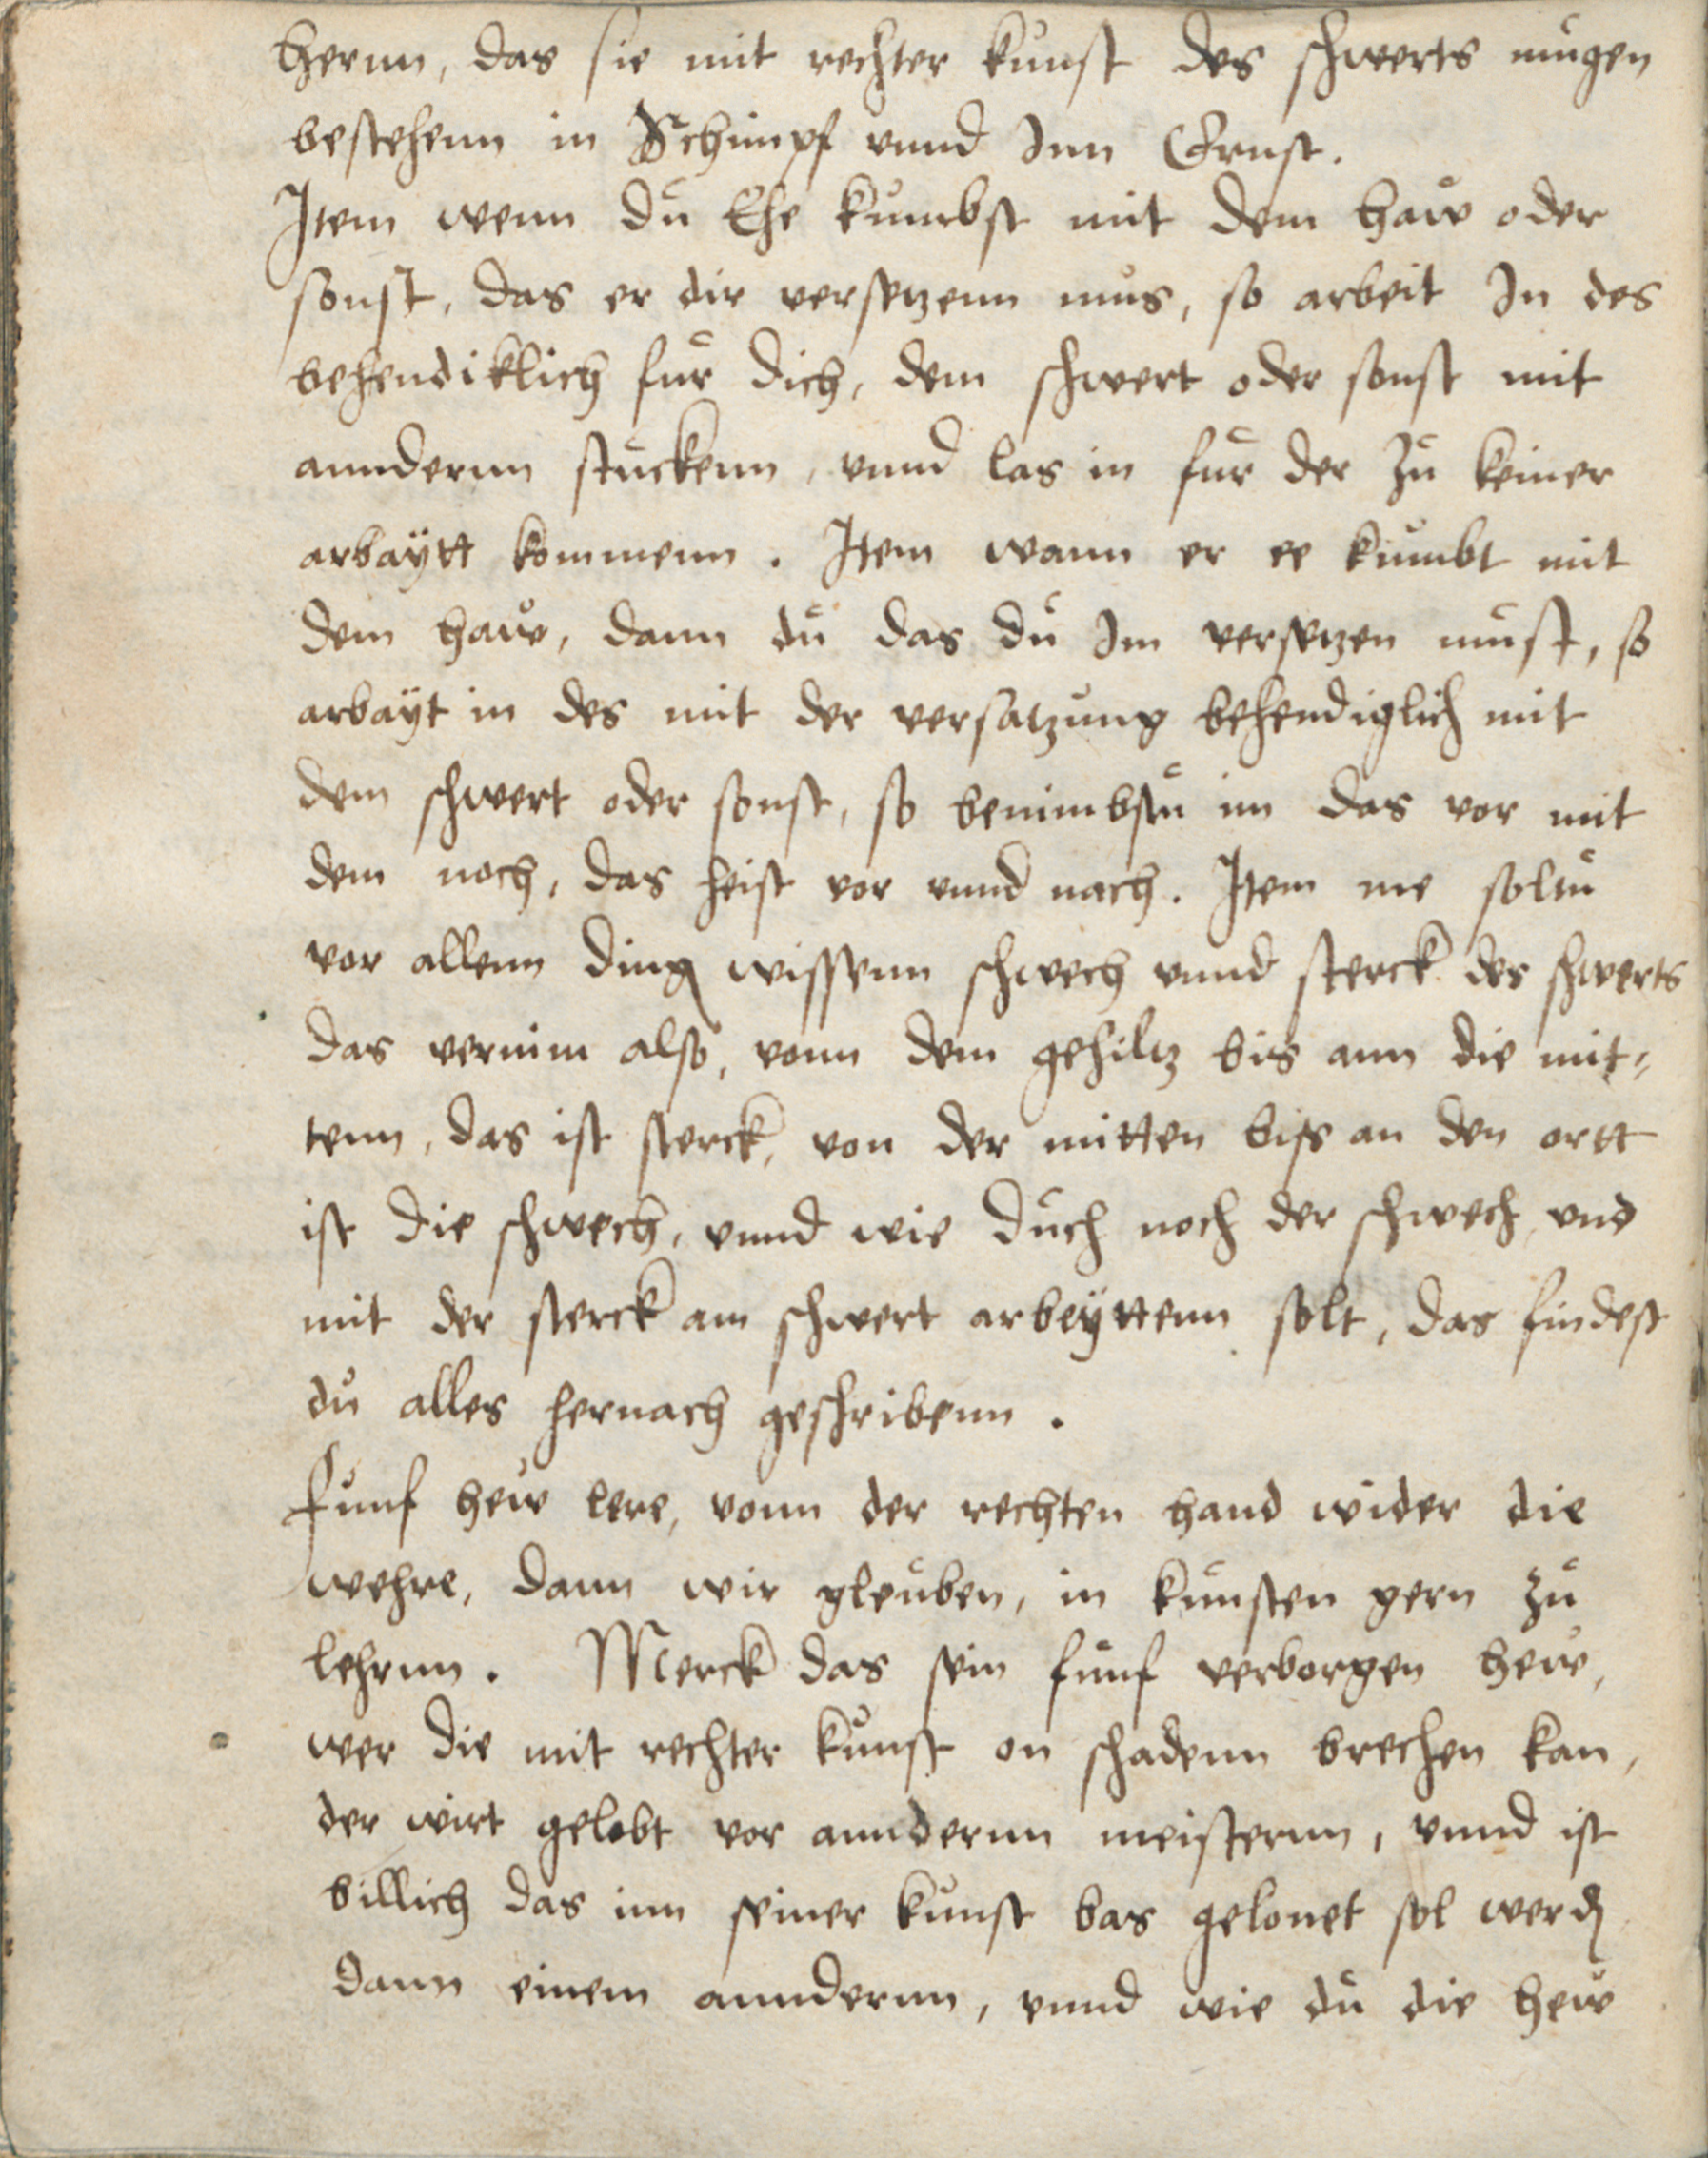 hernn, das sie mit rechter kunst des schwerts mügen
bestehenn in Schimpf vnnd Inn Ernst.
Item wenn dů Ehe kůmbst mit dem haẘ oder
sonst, das er dir versetzenn můs, so arbeit In des
behendiklich für dich, dem schwert oder sonst mit
annderenn stuckenn, vnnd las in für der zů keiner
arbaÿtt kommenn. Item wann er ee kůmbt mit
dem haẘe, dann dů das dů Im versetzen můst, so
arbaÿt in des mit der versatzůng behendiglich mit
dem schwert oder sonst, so benimbstů im das vor mit
dem noch, das heist vor vnnd nach. Item me soltů
vor allenn ding wissenn schwech vnnd sterck des schwerts
das vernim also, vonn dem gehiltz bis ann die mit⸗
tenn, das ist sterck, von der mitten biss an den ortt
ist die schwech, vnnd wie dů ch noch der schwech vnd
mit der sterck am schwert arbeÿttenn solt, das findest
dů alles hernach geschribenn.
Fünf heẘ lere, vonn der rechten hand wider die
wehre, dann wir gleuben, in künsten gern zů
lehrnn. Merck das sein fünf verborgen heẘ,
wer die mit rechter kůnst on schadenn brechen kan,
der wirt gelobt vor annderenn meisterenn, vnnd ist
billich das imm seiner kůnst bas gelonet sol werdn
dann einem annderenn, vnnd wie dů die heẘ